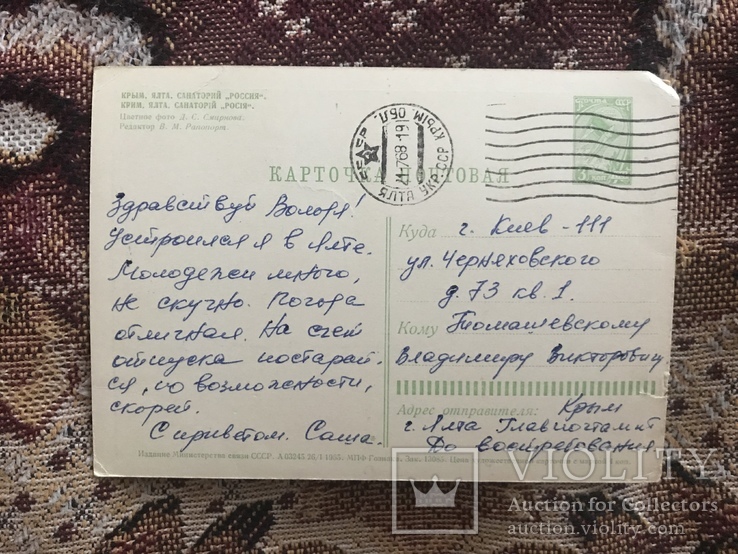 КРЫМ, ЯЛТА, САНАТОРИЙ „РОССИЯ".
КРИМ, ЯЛТА, САНАТОРІЙ „РОСІЯ".
Цветное фото Д. С. Смирнова.
Редактор В. М. Раппопорт.
КАРТОЧКА ПОЧТОВАЯ
Здравствуй Володя!
Устроился я в Ялте.
Молодежи много,
не скучно. Погода
отличная. На счет
отпуска постарай-
ся, по возможности,
скорей.
С приветом. Саша.
УКР. ССР ЯЛТА КРЫМ. ОБЛ.
Куда г. Киев-111
ул. Черняховского
д. 73 кв. 1.
Кому Томашевскому
Владимиру Викторовичу
Адрес отправителя: Крым
г. Ялта Главпочтамт
До востребования
Издание Министерства связи СССР.
VIOLITY
Auction for Collectors
auction.violity.com